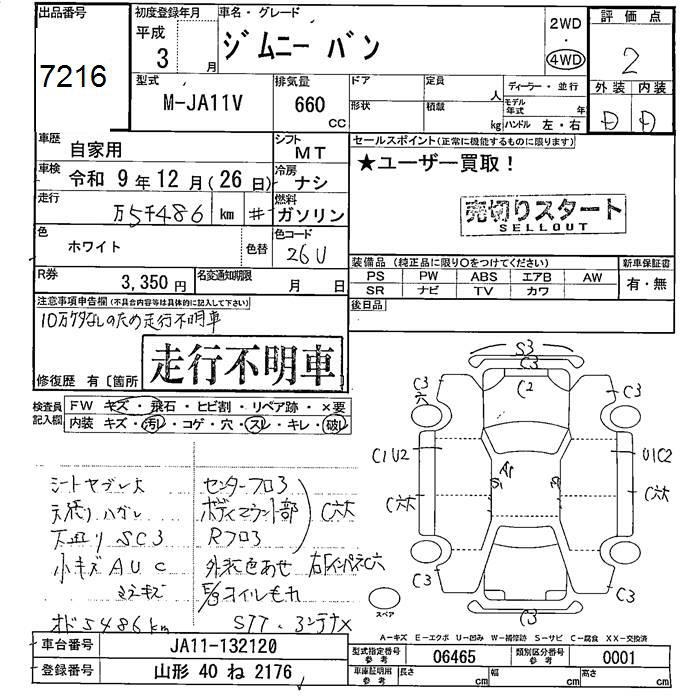 出品番号
7216
初度登録年月
平成
3
月
車名・グレード
ジムニー バン
2WD
・
4WD
評価点
2
外装
内装
D
D
型式
M-JA11V
排気量
660
CC
ドア
定員
人
形状
積載
kg
ディーラー・並行
モデル年式
年
ハンドル 左・右
車歴
自家用
シフト
MT
車検
令和 9年12月(26日)
冷房
ナシ
走行
万5千486
km
#
燃料
ガソリン
色
ホワイト
色替
色コード
26U
R券
3,350円
名変通知期限
月 日
セールスポイント(正常に機能するものに限ります)
★ユーザー買取!
売切りスタート
SELLOUT
装備品 (純正品に限り○をつけてください)
PS PW ABS エアB AW
SR ナビ TV カワ
新車保証書
有・無
後日品
注意事項申告欄(不具合内容等は具体的に記入して下さい)
10万ケタなしのため走行不明車
走行不明車
修復歴 有〔箇所
検査員記入欄
FW キズ・飛石・ヒビ割・リペア跡・×要
内装 キズ・汚レ・コゲ・穴・スレ・キレ・破レ
シートヤブレ大
天張りハガレ
下回り SC3
小キズ AUC
オド5486km
センターフロ3
ボディマウント部
C穴大
Rフロ3
外装色あせ
右リインパネC穴
E/gオイルもれ
S3
C3
C2
C3
穴
C3
C1U2
U1C2
C穴大
C穴大
C3
C3
C3
スペア
A−キズ E−エクボ U−凹み W−補修跡 S−サビ C−腐食 XX−交換済
車台番号
JA11-132120
登録番号
山形 40 ね 2176
型式指定番号
参考
06465
類別区分番号
参考
0001
車庫証明用
参考
長さ
cm
幅
cm
高さ
cm